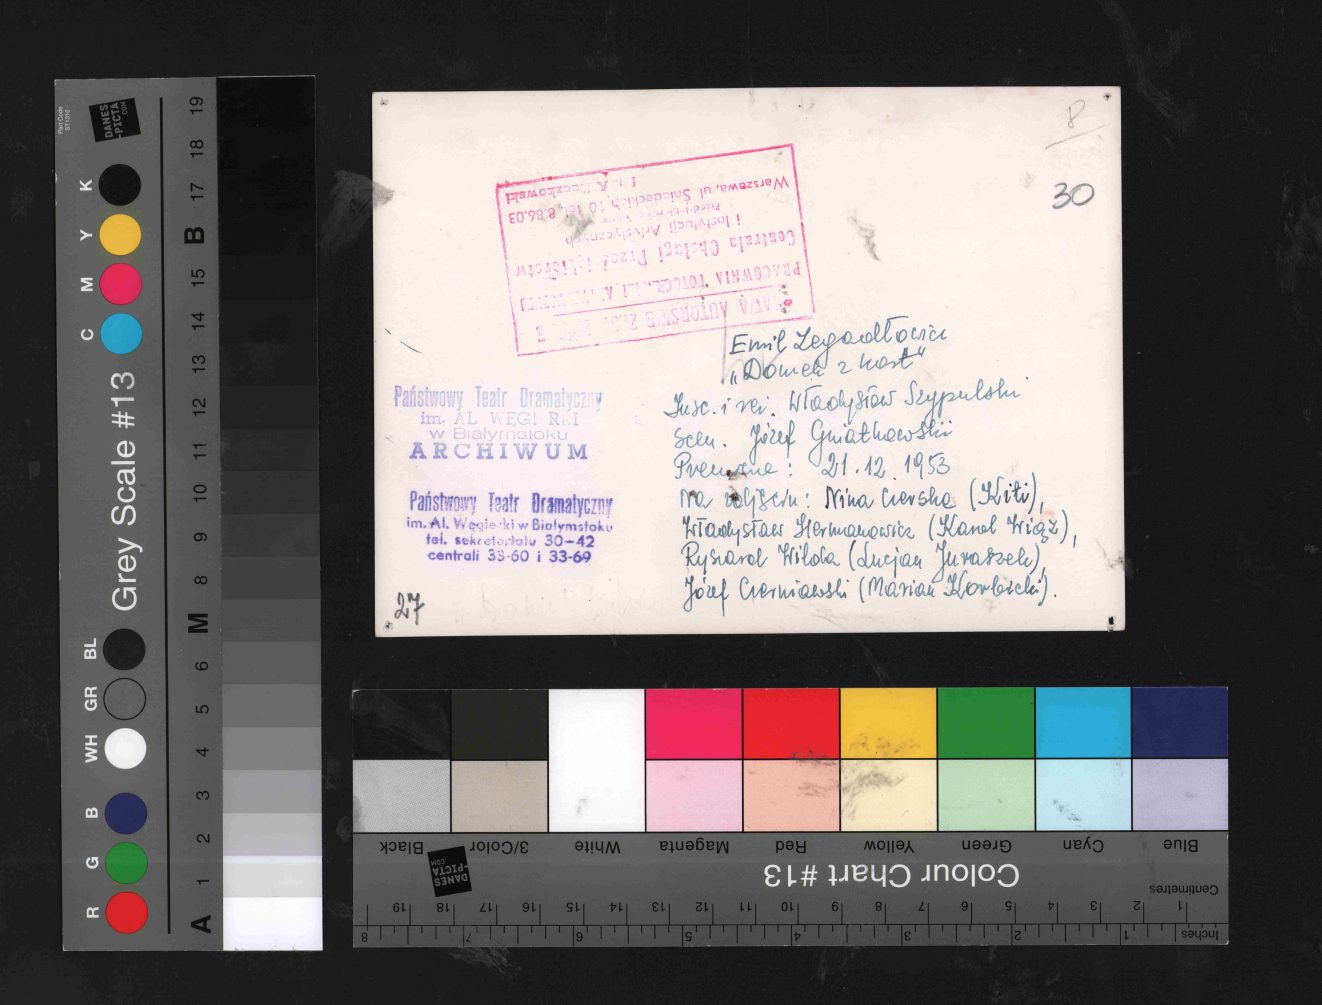 8
30
PRAWA AUTORSKIE
PRACOWNIA FOTOGRAFII
Centrala Obsługi Przedsiębiorstw
i Instytucji Artystycznych
Warszawa, ul. Śniadeckich 10 tel. 8.86.03
Emil Zegadłowicz
„Domek z kart"
Insc. i reż. Władysław Szypulski
Scen. Józef Gniatkowski
Premiera: 21.12.1953
Na zdjęciu: Nina Czerska (Kiti),
Władysław Hermanowicz (Karol Wiąz),
Ryszard Wilda (Lucjan Juraszek),
Józef Czerniawski (Marian Korbicki).
Państwowy Teatr Dramatyczny
im. AL. WĘGIERKI
w Białymstoku
ARCHIWUM
Państwowy Teatr Dramatyczny
im. Al. Węgierki w Białymstoku
tel. sekretariatu 30-42
centrali 33-60 i 33-69
27
Part Code
ST1316
DANES
-PICTA
.COM
Grey Scale #13
R G B WH GR BL C M Y K
A 1 2 3 4 5 6 M 8 9 10 11 12 13 14 15 B 17 18 19
Blue Cyan Green Yellow Red Magenta White 3/Color Black
Colour Chart #13
DANES
-PICTA
.COM
Centimetres
1 2 3 4 5 6 7 8 9 10 11 12 13 14 15 16 17 18 19
Inches 1 2 3 4 5 6 7 8